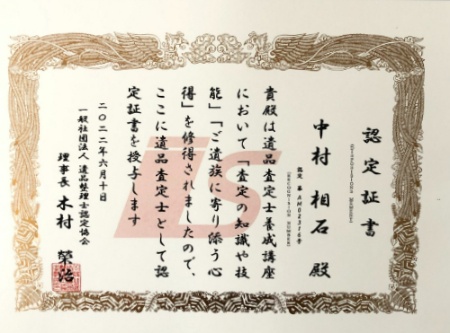 認定証書
認定 第 AM02316号
中村 相石 殿
貴殿は遺品査定士養成講座
において「査定の知識や技
能」「ご遺族に寄り添う心
得」を修得されましたので、
ここに遺品査定士として認
定証書を授与します
二〇二二年六月十日
一般社団法人 遺品整理士認定協会
理事長 木村 榮治
IS